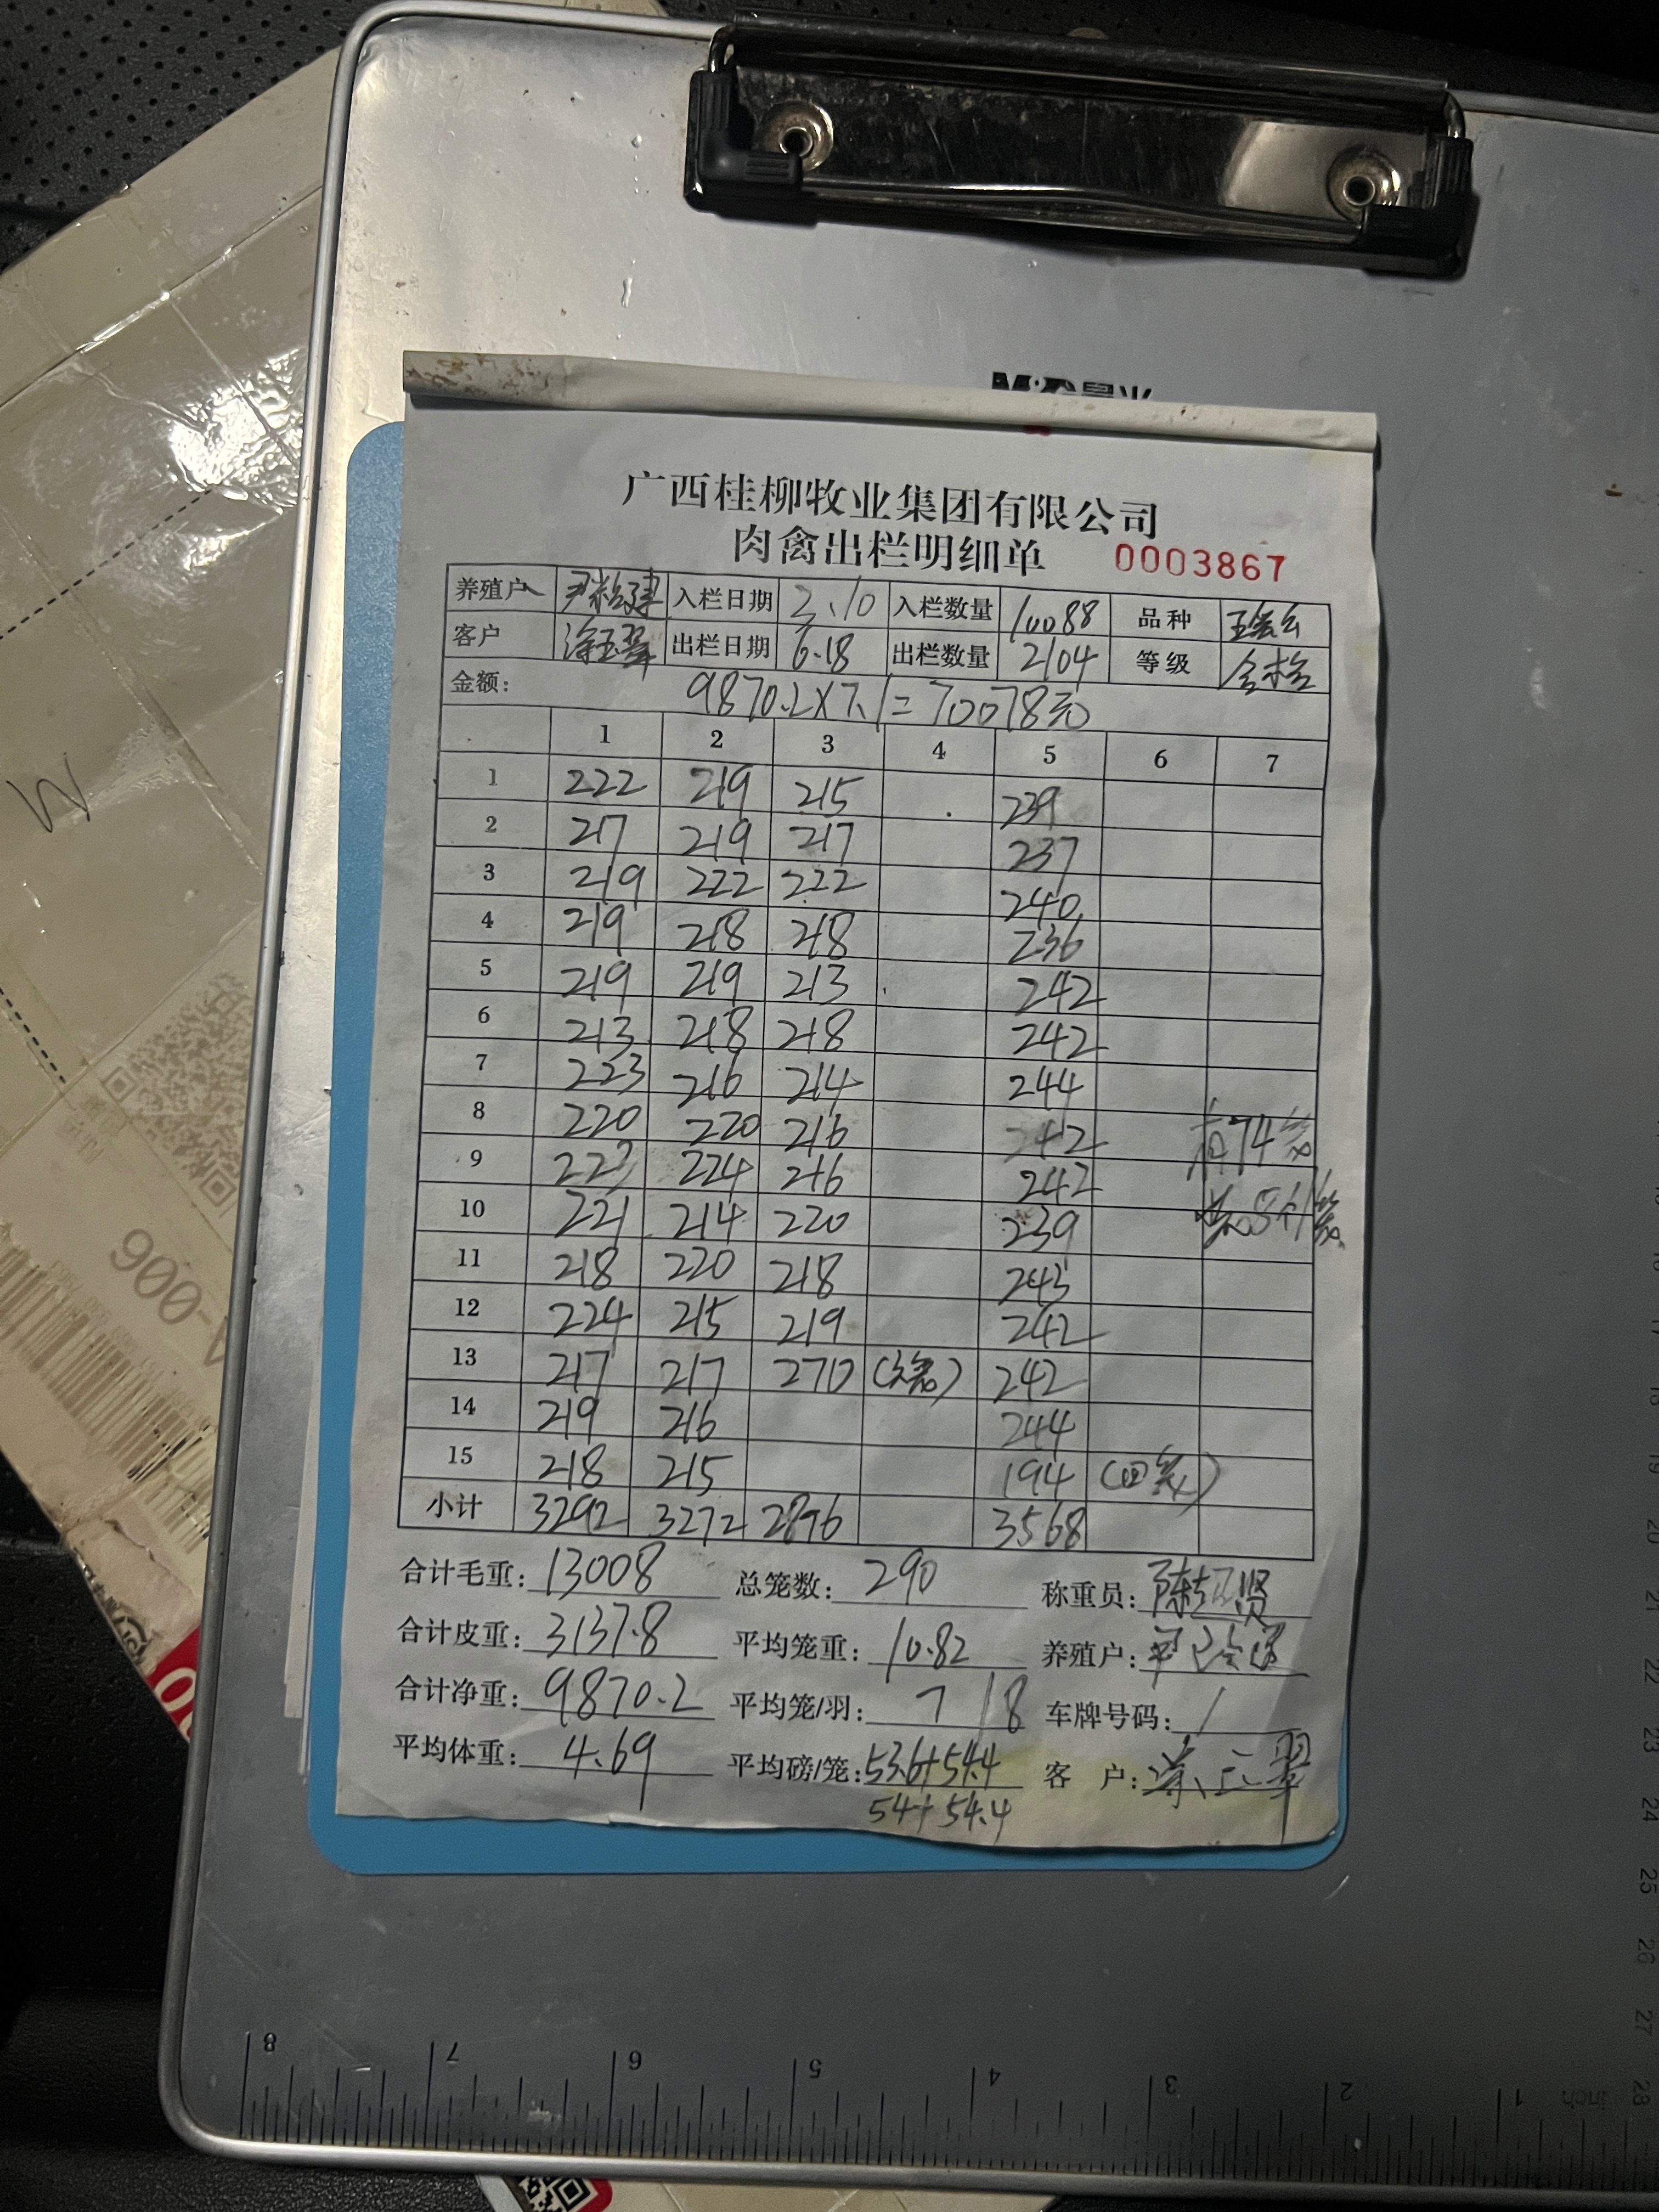 广西桂柳牧业集团有限公司
肉禽出栏明细单 0003867
养殖户 入栏日期 3.10 入栏数量 10088 品种
客户 涂玉翠 出栏日期 6.18 出栏数量 2104 等级 合格
金额: 9870.2×7.1=70078元
1 2 3 4 5 6 7
1 222 219 215 239
2 217 219 217 237
3 219 222 222 240
4 219 218 218 236
5 219 219 213 242
6 213 218 218 242
7 223 216 214 244
8 220 220 216 242 有74笼
9 223 224 216 242
10 221 214 220 239
11 218 220 218 243
12 224 215 219 242
13 217 217 270 242
14 219 216 244
15 218 215 194 (四笼)
小计 3292 3272 2876 3568
合计毛重: 13008 总笼数: 290 称重员:
合计皮重: 3137.8 平均笼重: 10.82 养殖户:
合计净重: 9870.2 平均笼/羽: 7 / 8 车牌号码: /
平均体重: 4.69 平均磅/笼: 53.6+54.4 客 户: 涂玉翠
54+54.4
900
8 7 6 5 4 3 2 1 inch
19 20 21 22 23 24 25 26 27 28